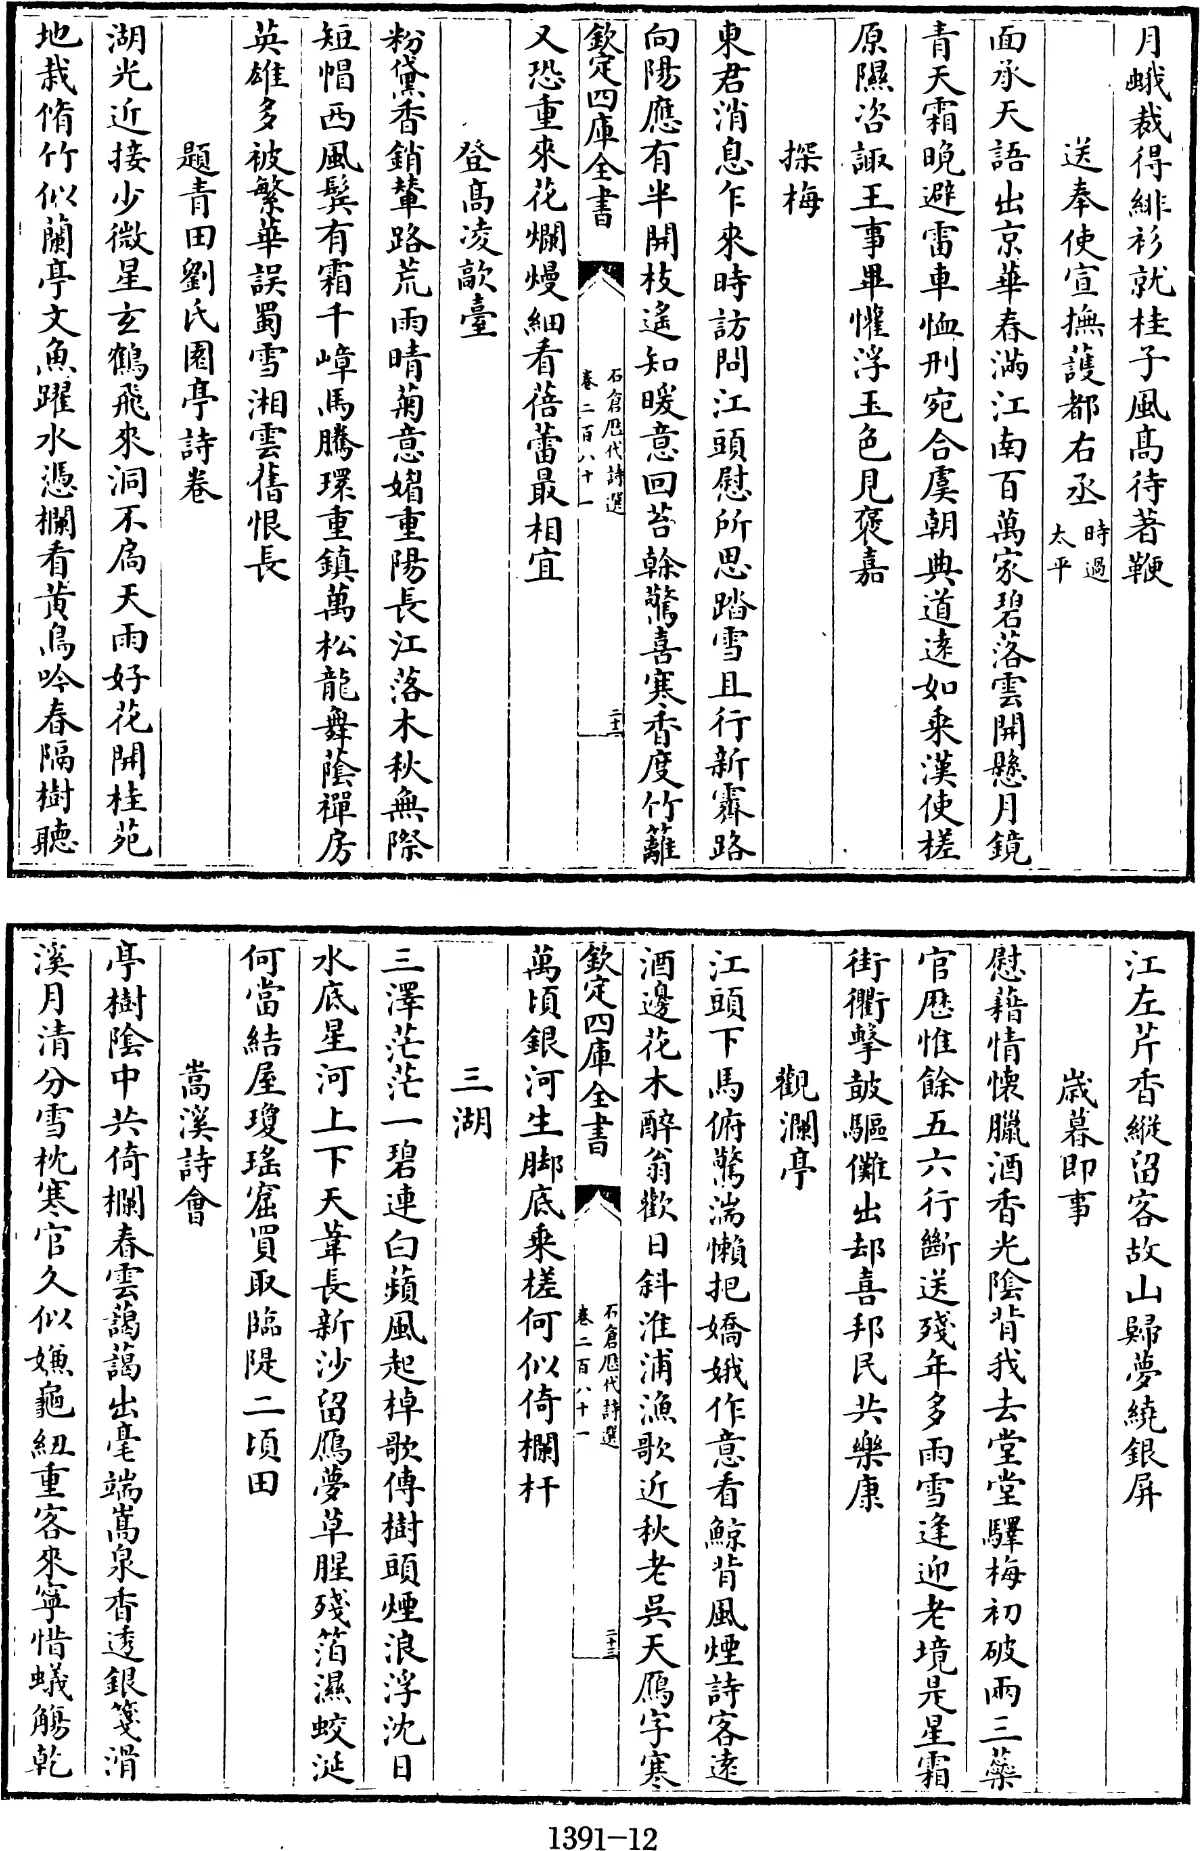 月蛾裁得緋衫就桂子風髙待著鞭
送奉使宣撫護都右丞時過太平
面承天語出京華春滿江南百萬家碧落雲開懸月鏡
青天霜晚避雷車恤刑宛合虞朝典道逺如乘漢使槎
原隰咨諏王事畢懽浮玉色見褒嘉
探梅
東君消息乍來時訪問江頭慰所思踏雪且行新霽路
向陽應有半開枝遙知暖意回苔榦驚喜寒香度竹籬
欽定四庫全書
石倉歴代詩選
卷二百八十一
二十二
又恐重來花爛熳細看蓓蕾最相宜
登髙凌歊臺
粉黛香銷輦路荒雨晴菊意媚重陽長江落木秋無際
短帽西風鬂有霜千嶂馬騰環重鎮萬松龍舞蔭禪房
英雄多被繁華誤蜀雪湘雲舊恨長
題青田劉氏園亭詩卷
湖光近接少微星玄鶴飛來洞不扃天雨好花開桂苑
地栽脩竹似蘭亭文魚躍水憑欄看黄鳥吟春隔樹聽
江左芹香縱留客故山歸夢繞銀屏
歳暮即事
慰藉情懷臘酒香光陰背我去堂堂驛梅初破兩三蘂
官歴惟餘五六行斷送殘年多雨雪逢迎老境是星霜
街衢擊鼓驅儺出却喜邦民共樂康
觀瀾亭
江頭下馬俯驚湍懶把嬌娥作意看鯨背風煙詩客逺
酒邊花木醉翁歡日斜淮浦漁歌近秋老吳天鴈字寒
欽定四庫全書
石倉歴代詩選
卷二百八十一
二十三
萬頃銀河生脚底乘槎何似倚欄杆
三湖
三澤茫茫一碧連白蘋風起棹歌傳樹頭煙浪浮沈日
水底星河上下天葦長新沙留鴈夢草腥殘箔濕蛟涎
何當結屋瓊瑶窟買取臨隄二頃田
嵩溪詩會
亭樹陰中共倚欄春雲藹藹出毫端嵩泉香透銀箋滑
溪月清分雪枕寒官久似嫌龜紐重客來寧惜蟻觴乾
1391-12